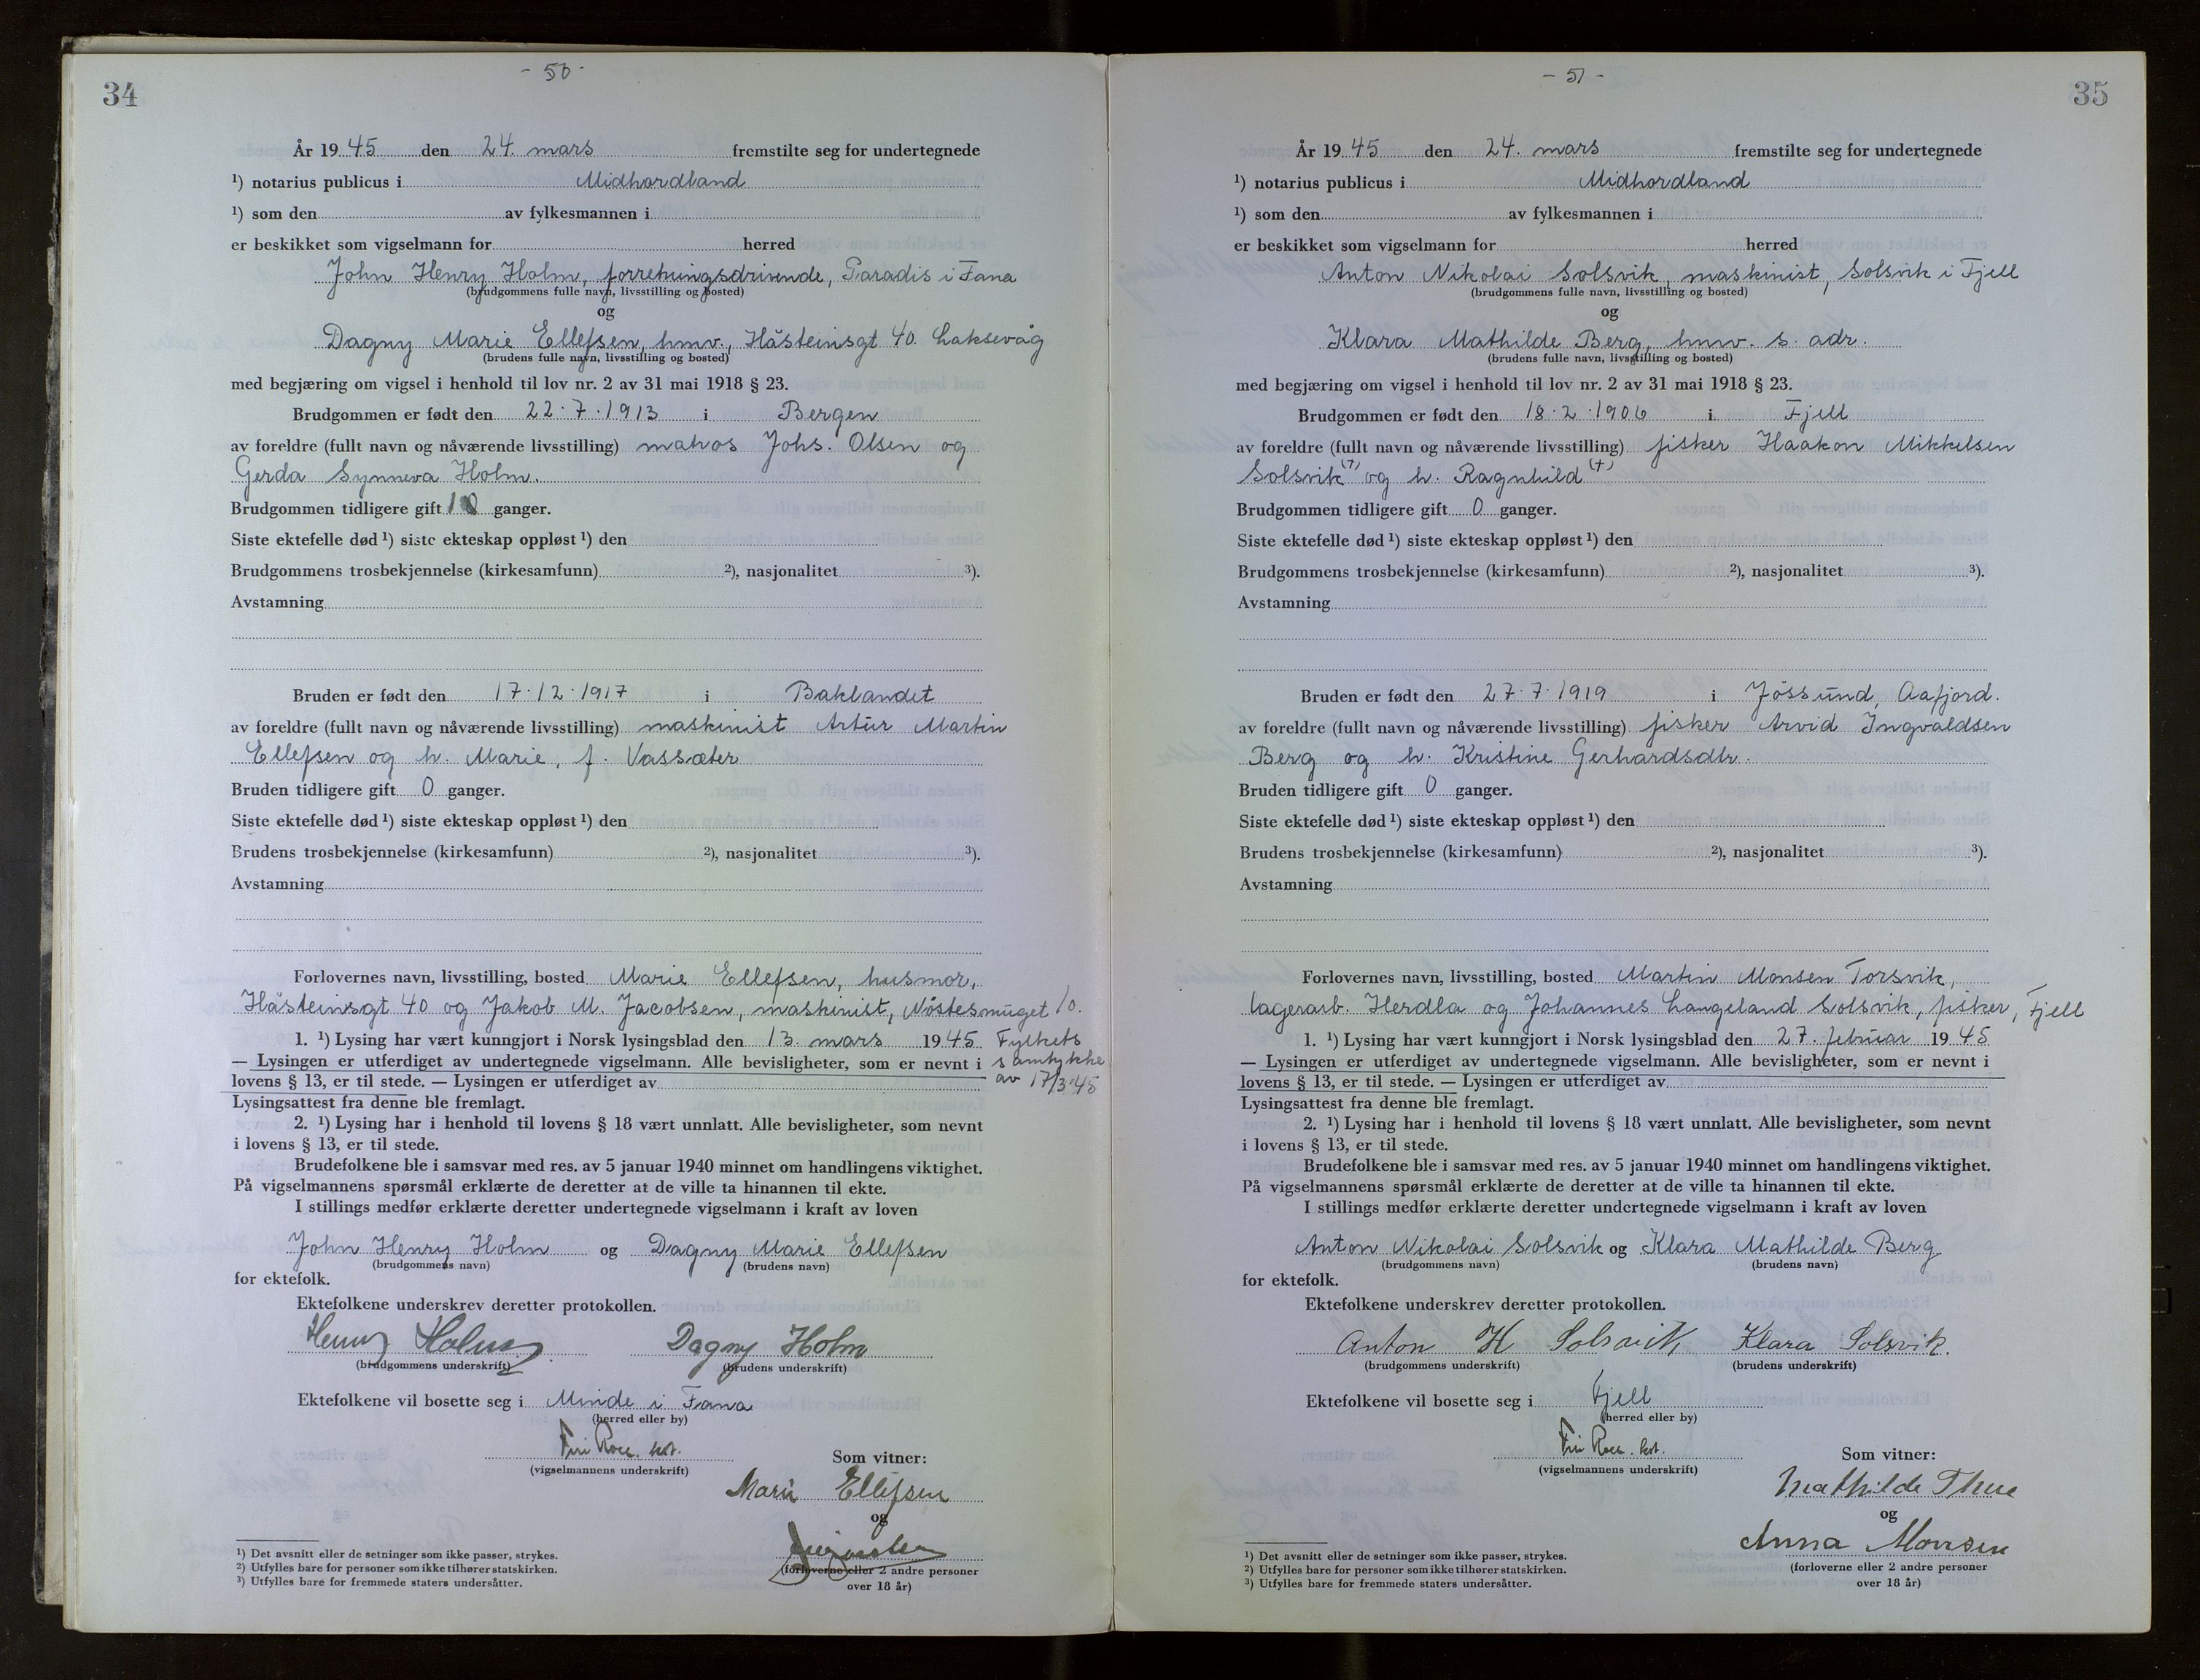 34
- 50 -
År 1945 den 24. mars fremstilte seg for undertegnede
¹) notarius publicus i Midhordland
¹) som den av fylkesmannen i
er beskikket som vigselmann for herred
John Henry Holm, forretningsdrivende, Paradis i Fana
(brudgommens fulle navn, livsstilling og bosted)
og
Dagny Marie Ellefsen, hmv., Håsteinsgt 40. Laksevåg
(brudens fulle navn, livsstilling og bosted)
med begjæring om vigsel i henhold til lov nr. 2 av 31 mai 1918 § 23.
Brudgommen er født den 22.7.1913 i Bergen
av foreldre (fullt navn og nåværende livsstilling) matros Johs. Olsen og
Gerda Synneva Holm.
Brudgommen tidligere gift 1 ganger.
Siste ektefelle død ¹) siste ekteskap oppløst ¹) den
Brudgommens trosbekjennelse (kirkesamfunn) ²), nasjonalitet ³).
Avstamning
Bruden er født den 17.12.1917 i Baklandet
av foreldre (fullt navn og nåværende livsstilling) maskinist Artur Martin
Ellefsen og h. Marie, f. Vassæter
Bruden tidligere gift 0 ganger.
Siste ektefelle død ¹) siste ekteskap oppløst ¹) den
Brudens trosbekjennelse (kirkesamfunn) ²), nasjonalitet ³).
Avstamning
Forlovernes navn, livsstilling, bosted Marie Ellefsen, husmor,
Håsteinsgt 40 og Jakob M. Jacobsen, maskinist, Nøstesmuget 10.
1. ¹) Lysing har vært kunngjort i Norsk lysingsblad den 13. mars 1945 Fylkets
— Lysingen er utferdiget av undertegnede vigselmann. Alle bevisligheter, som er nevnt i samtykke
lovens § 13, er til stede. — Lysingen er utferdiget av av 17/3.45
Lysingsattest fra denne ble fremlagt.
2. ¹) Lysing har i henhold til lovens § 18 vært unnlatt. Alle bevisligheter, som nevnt
i lovens § 13, er til stede.
Brudefolkene ble i samsvar med res. av 5 januar 1940 minnet om handlingens viktighet.
På vigselmannens spørsmål erklærte de deretter at de ville ta hinannen til ekte.
I stillings medfør erklærte deretter undertegnede vigselmann i kraft av loven
John Henry Holm og Dagny Marie Ellefsen
(brudgommens navn) (brudens navn)
for ektefolk.
Ektefolkene underskrev deretter protokollen.
Henry Holm Dagny Holm
(brudgommens underskrift) (brudens underskrift)
Ektefolkene vil bosette seg i Minde i Fana
(herred eller by)
(vigselmannens underskrift)
Som vitner:
Marie Ellefsen
og
(forloverne eller 2 andre personer
over 18 år)
¹) Det avsnitt eller de setninger som ikke passer, strykes.
²) Utfylles bare for personer som ikke tilhører statskirken.
³) Utfylles bare for fremmede staters undersåtter.
35
- 51 -
År 1945 den 24. mars fremstilte seg for undertegnede
¹) notarius publicus i Midhordland
¹) som den av fylkesmannen i
er beskikket som vigselmann for herred
Anton Nikolai Solsvik, maskinist, Solsvik i Fjell
(brudgommens fulle navn, livsstilling og bosted)
og
Klara Mathilde Berg, hmv. s. adr.
(brudens fulle navn, livsstilling og bosted)
med begjæring om vigsel i henhold til lov nr. 2 av 31 mai 1918 § 23.
Brudgommen er født den 18.2.1906 i Fjell
av foreldre (fullt navn og nåværende livsstilling) fisker Haakon Mikkelsen
Solsvik (+) og h. Ragnhild (+)
Brudgommen tidligere gift 0 ganger.
Siste ektefelle død ¹) siste ekteskap oppløst ¹) den
Brudgommens trosbekjennelse (kirkesamfunn) ²), nasjonalitet ³).
Avstamning
Bruden er født den 27.7.1919 i Jøssund, Aafjord.
av foreldre (fullt navn og nåværende livsstilling) fisker Arvid Ingvaldsen
Berg og h. Kristine Gerhardsdtr.
Bruden tidligere gift 0 ganger.
Siste ektefelle død ¹) siste ekteskap oppløst ¹) den
Brudens trosbekjennelse (kirkesamfunn) ²), nasjonalitet ³).
Avstamning
Forlovernes navn, livsstilling, bosted Martin Monsen Torsvik,
lagerarb. Herdla og Johannes Langeland Solsvik, fisker, Fjell
1. ¹) Lysing har vært kunngjort i Norsk lysingsblad den 27. februar 1945
— Lysingen er utferdiget av undertegnede vigselmann. Alle bevisligheter, som er nevnt i
lovens § 13, er til stede. — Lysingen er utferdiget av
Lysingsattest fra denne ble fremlagt.
2. ¹) Lysing har i henhold til lovens § 18 vært unnlatt. Alle bevisligheter, som nevnt
i lovens § 13, er til stede.
Brudefolkene ble i samsvar med res. av 5 januar 1940 minnet om handlingens viktighet.
På vigselmannens spørsmål erklærte de deretter at de ville ta hinannen til ekte.
I stillings medfør erklærte deretter undertegnede vigselmann i kraft av loven
Anton Nikolai Solsvik og Klara Mathilde Berg
(brudgommens navn) (brudens navn)
for ektefolk.
Ektefolkene underskrev deretter protokollen.
Anton H Solsvik Klara Solsvik.
(brudgommens underskrift) (brudens underskrift)
Ektefolkene vil bosette seg i Fjell
(herred eller by)
(vigselmannens underskrift)
Som vitner:
Mathilde
og
Anna Monsen
(forloverne eller 2 andre personer
over 18 år)
¹) Det avsnitt eller de setninger som ikke passer, strykes.
²) Utfylles bare for personer som ikke tilhører statskirken.
³) Utfylles bare for fremmede staters undersåtter.